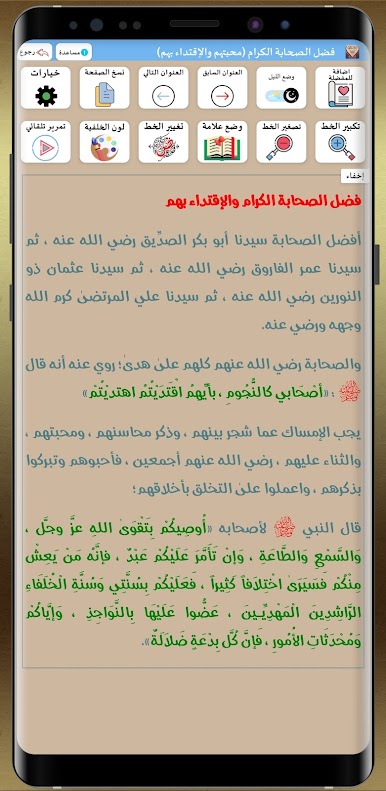 فضل الصحابة الكرام (محبتهم والإقتداء بهم)
مساعدة
رجوع
اضافة للمفضلة
وضع الليل
العنوان السابق
العنوان التالي
نسخ الصفحة
خيارات
تكبير الخط
تصغير الخط
وضع علامة
تغيير الخط
لون الخلفية
تمرير تلقائي
إخفاء
فضل الصحابة الكرام والإقتداء بهم
أفضل الصحابة سيدنا أبو بكر الصدِّيق رضي الله عنه ، ثم
سيدنا عمر الفاروق رضي الله عنه ، ثم سيدنا عثمان ذو
النورين رضي الله عنه ، ثم سيدنا علي المرتضىٰ كرم الله
وجهه ورضي عنه.
والصحابة رضي الله عنهم كلهم علىٰ هدىً؛ روي عنه أنه قال
ﷺ : «أَصْحَابي كالنُّجُومِ ، بأيِّهِمُ اقْتَدَيْتُمْ اهتديْتُمْ»
يجب الإمساك عما شجر بينهم ، وذكر محاسنهم ، ومحبتهم ،
والثناء عليهم ، رضي الله عنهم أجمعين ، فأحبوهم وتبركوا
بذكرهم ، واعملوا علىٰ التخلق بأخلاقهم؛
قال النبي ﷺ لأصحابه «أُوصِيكُمْ بِتَقْوَىٰ اللهِ عزَّ وجلَّ ،
وَالسَّمْعِ وَالطَّاعَةِ ، وَإن تَأَمَّرَ عَلَيْكُمْ عَبْدٌ ، فإنَّهُ مَنْ يَعِشْ
مِنْكُمْ فَسَيَرَىٰ اخْتِلَافاً كَثِيراً ، فَعَلَيْكُمْ بِسُنَّتِي وَسُنَّةِ الْخُلَفَاءِ
الرَّاشِدِينَ الْمَهْدِيِّـينَ ، عَضُّوا عَلَيْهَا بِالنَّوَاجِذِ ، وَإيَّاكُمْ
وَمُحْدَثَاتِ الأُمُورِ ، فَإنَّ كُلَّ بِدْعَةٍ ضَلالَةٌ».